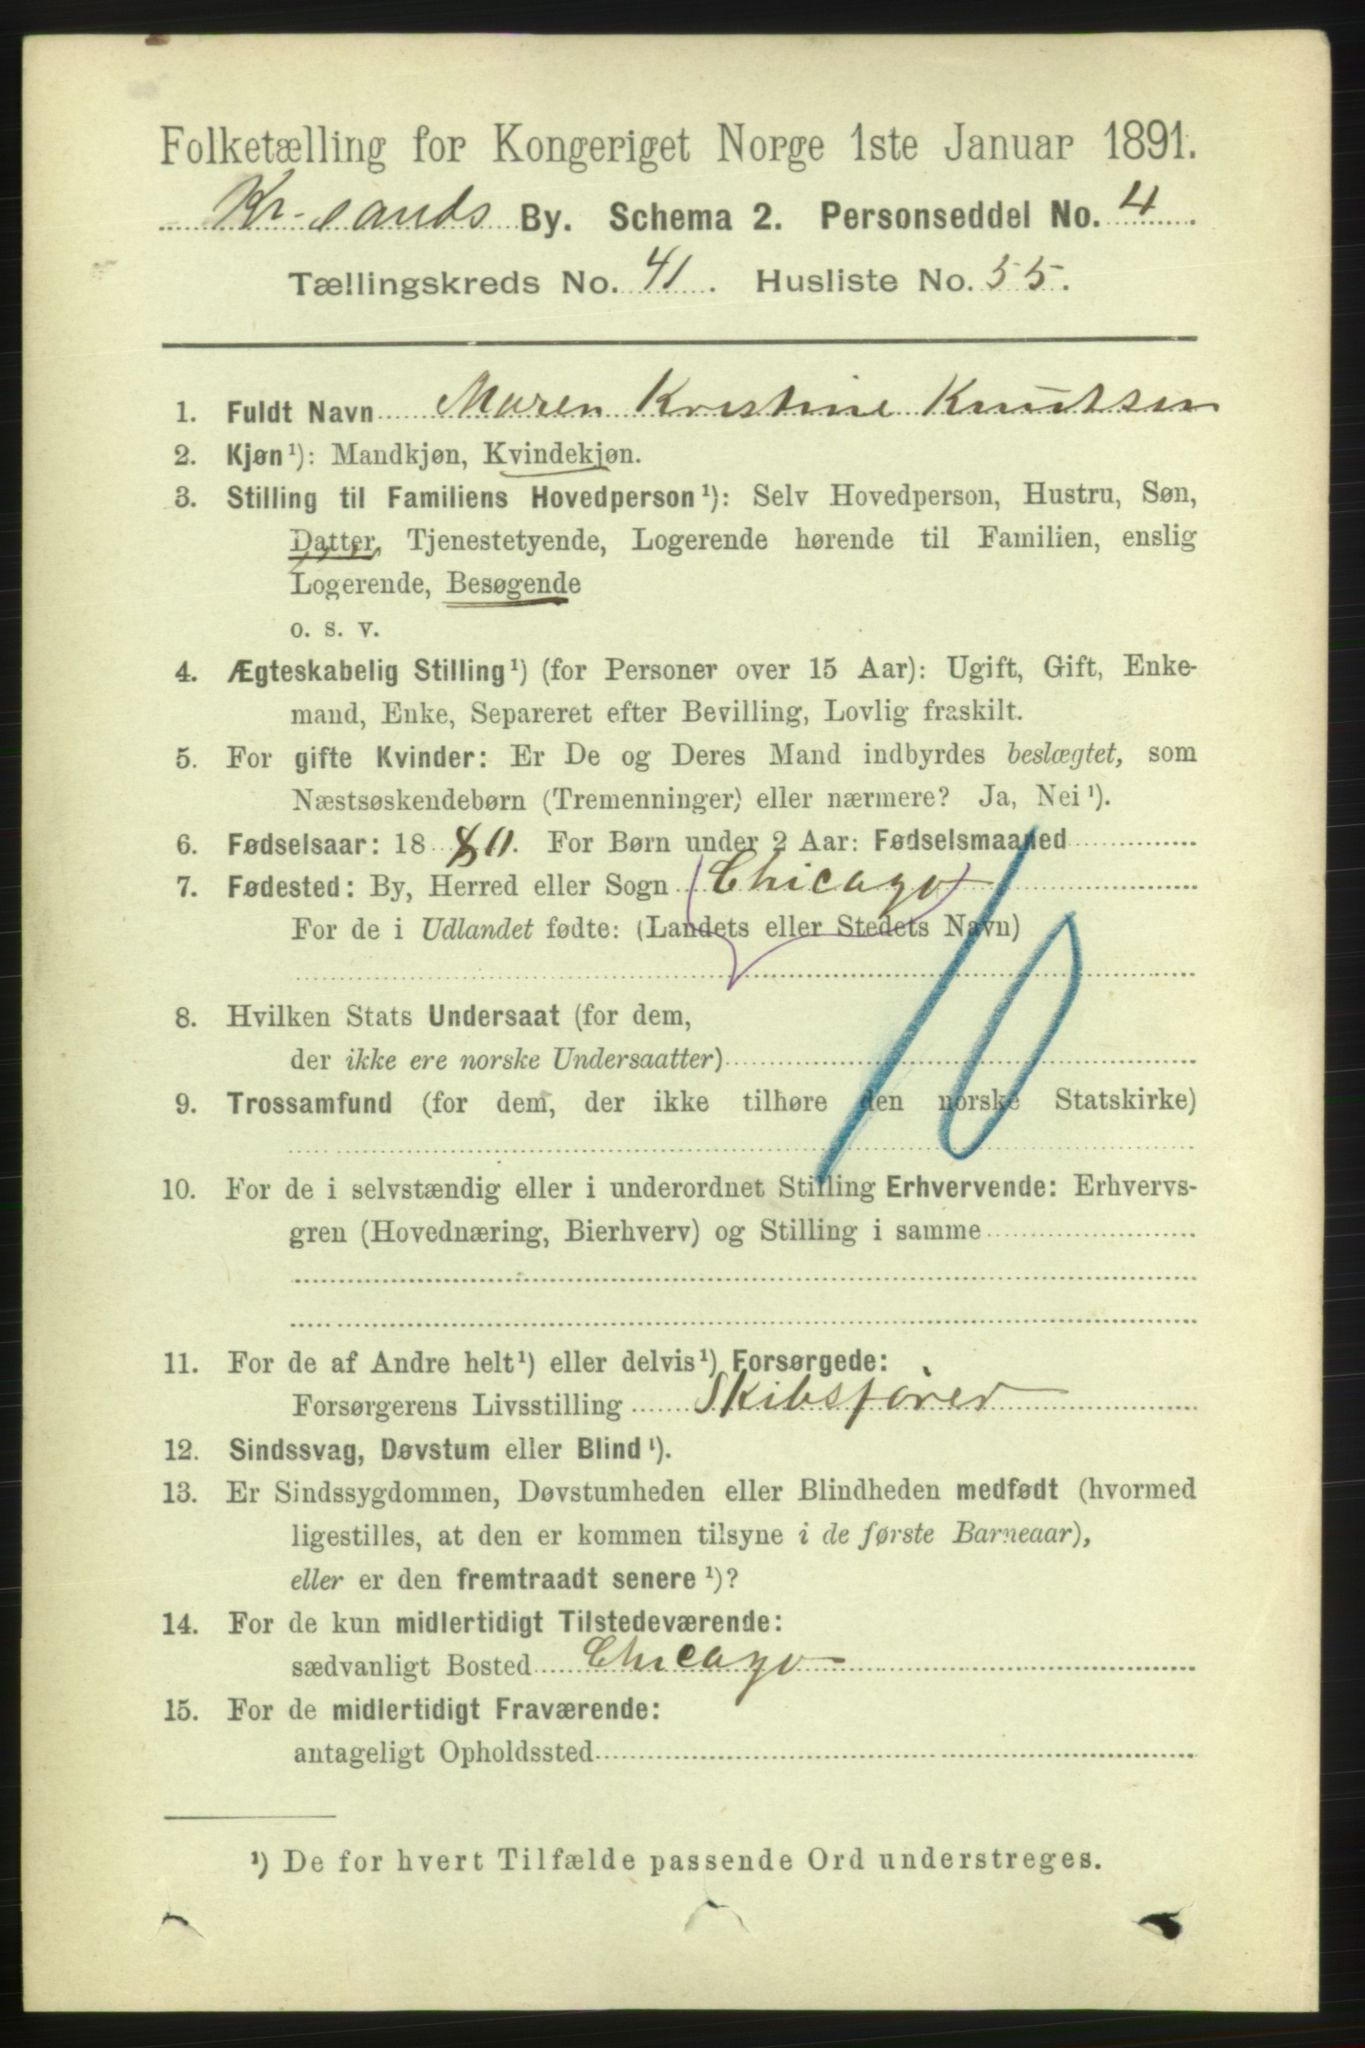 Folketælling for Kongeriget Norge 1ste Januar 1891.
Kr-sands By. Schema 2. Personseddel No. 4
Tællingskreds No. 41. Husliste No. 55.
1. Fuldt Navn Maren Kristine Knutsen
2. Kjøn ¹): Mandkjøn, Kvindekjøn.
3. Stilling til Familiens Hovedperson ¹): Selv Hovedperson, Hustru, Søn,
Datter, Tjenestetyende, Logerende hørende til Familien, enslig
Logerende, Besøgende
o. s. v.
4. Ægteskabelig Stilling ¹) (for Personer over 15 Aar): Ugift, Gift, Enke-
mand, Enke, Separeret efter Bevilling, Lovlig fraskilt.
5. For gifte Kvinder: Er De og Deres Mand indbyrdes beslægtet, som
Næstsøskendebørn (Tremenninger) eller nærmere? Ja, Nei ¹).
6. Fødselsaar: 1880. For Børn under 2 Aar: Fødselsmaaned
7. Fødested: By, Herred eller Sogn Chicago
For de i Udlandet fødte: (Landets eller Stedets Navn)
10
8. Hvilken Stats Undersaat (for dem,
der ikke ere norske Undersaatter)
9. Trossamfund (for dem, der ikke tilhøre den norske Statskirke)
10. For de i selvstændig eller i underordnet Stilling Erhvervende: Erhvervs-
gren (Hovednæring, Bierhverv) og Stilling i samme
11. For de af Andre helt ¹) eller delvis ¹) Forsørgede:
Forsørgerens Livsstilling Skibsfører
12. Sindssvag, Døvstum eller Blind ¹).
13. Er Sindssygdommen, Døvstumheden eller Blindheden medfødt (hvormed
ligestilles, at den er kommen tilsyne i de første Barneaar),
eller er den fremtraadt senere ¹)?
14. For de kun midlertidigt Tilstedeværende:
sædvanligt Bosted Chicago
15. For de midlertidigt Fraværende:
antageligt Opholdssted
¹) De for hvert Tilfælde passende Ord understreges.